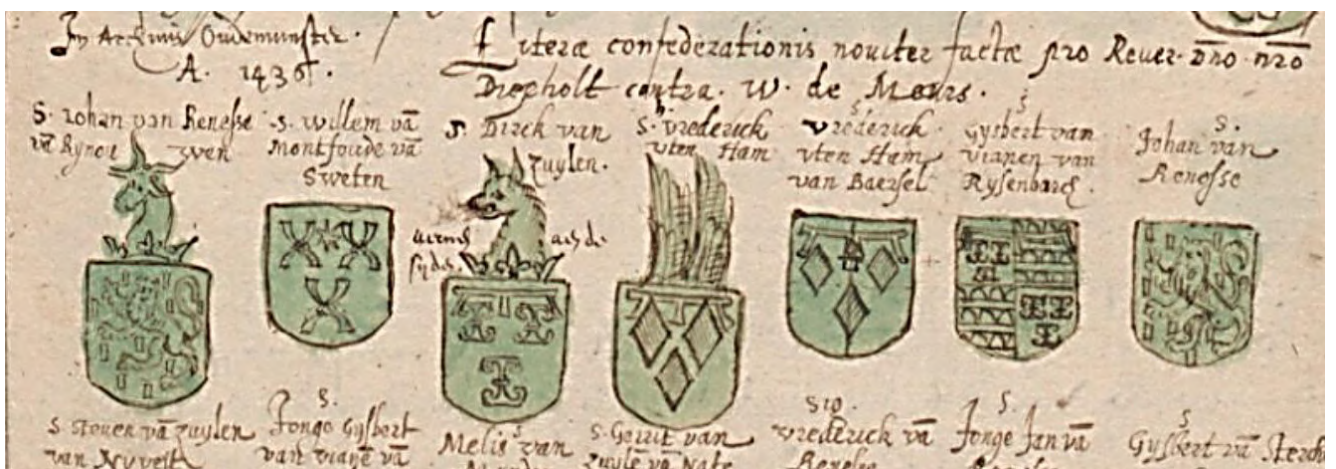 In Archivis Oudemunster.
A. 1436.
Literæ confederationis noviter factæ pro Rever. Dno. nro
Diepholt contra. W. de Meurs.
S. Johan van Renesse
vā Rynou wen
S. Willem vā
Montfoude vā
Sweten
S. Dirck van
Zuylen.
S. Vrederick
vten Ham
S
Vrederick
vten Ham
van Baersel
S
Gysbert van
Vianen van
Rysenborch.
S.
Johan van
Renesse
S Steven vā Zuylen
van Nyvelt
S.
Jonge Gysbert
van Vianē vā
S
Melis van
S. Gerrit van
Zuylē vā Nate
Sig.
Vrederick vā
Renesse
S.
Jonge Jan vā
Renesse
S
Gysbert vā Sterck